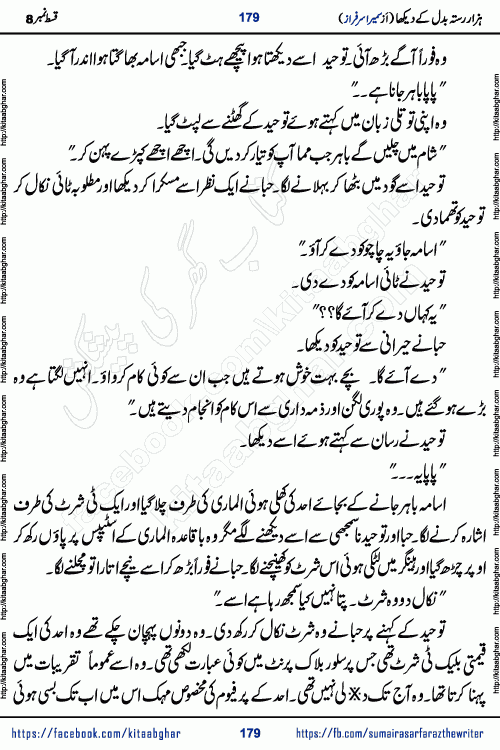 ہزار رستہ بدل کے دیکھا (از سمیرا سرفراز)
179
قسط نمبر 8
وہ فوراً آگے بڑھ آئی۔ توحید اسے دیکھتا ہوا پیچھے ہٹ گیا۔ جبھی اسامہ بھاگتا ہوا اندر آ گیا۔
”پاپا باہر جانا ہے۔۔“
وہ اپنی توتلی زبان میں کہتے ہوئے توحید کے گھٹنے سے لپٹ گیا۔
”شام میں چلیں گے باہر جب مما آپ کو تیار کر دیں گی۔ اچھے اچھے کپڑے پہن کر۔“
توحید اسے گود میں بٹھا کر بہلانے لگا۔ حبا نے ایک نظر اسے مسکرا کر دیکھا اور مطلوبہ ٹائی نکال کر
توحید کو تھما دی۔
”اسامہ جاؤ یہ چاچو کو دے کر آؤ۔“
توحید نے ٹائی اسامہ کو دے دی۔
”یہ کہاں دے کر آئے گا؟؟“
حبا نے حیرانی سے توحید کو دیکھا۔
”دے آئے گا۔ بچے بہت خوش ہوتے ہیں جب ان سے کوئی کام کرواؤ۔ انہیں لگتا ہے وہ
بڑے ہو گئے ہیں۔ وہ پوری لگن اور ذمہ داری سے اس کام کو انجام دیتے ہیں۔“
توحید نے رسان سے کہتے ہوئے اسے دیکھا۔
”پاپا یہ۔۔۔“
اسامہ باہر جانے کے بجائے احد کی کھلی ہوئی الماری کی طرف چلا گیا اور ایک ٹی شرٹ کی طرف
اشارہ کرنے لگا۔ حبا اور توحید نا سمجھی سے اسے دیکھنے لگے مگر وہ باقاعدہ الماری کے اسٹیپس پر پاؤں رکھ کر
اوپر چڑھ گیا اور ہینگر میں لٹکی ہوئی اس شرٹ کو کھینچنے لگا۔ حبا نے فوراً بڑھ کر اسے نیچے اتارا تو مچلنے لگا۔
”نکال دو وہ شرٹ۔ پتا نہیں کیا سمجھ رہا ہے اسے۔“
توحید کے کہنے پر حبا نے وہ شرٹ نکال کر رکھ دی۔ وہ دونوں پہچان چکے تھے وہ احد کی ایک
قیمتی بلیک ٹی شرٹ تھی جس پر سلور بلاک پرنٹ میں کوئی عبارت لکھی تھی۔ وہ اسے عموماً تقریبات میں
پہنا کرتا تھا۔ وہ آج تک دھلی نہیں تھی۔ احد کے پرفیوم کی مخصوص مہک اس میں اب تک بسی ہوئی
https://facebook.com/kitaabghar
179
https://fb.com/sumairasarfarazthewriter
http://kitaabghar.com http://kitaabghar.com http://kitaabghar.com http://kitaabghar.com http://kitaabghar.com
کتاب گھر کی پیشکش
facebook.com/kitaabghar
kitaabghar.com